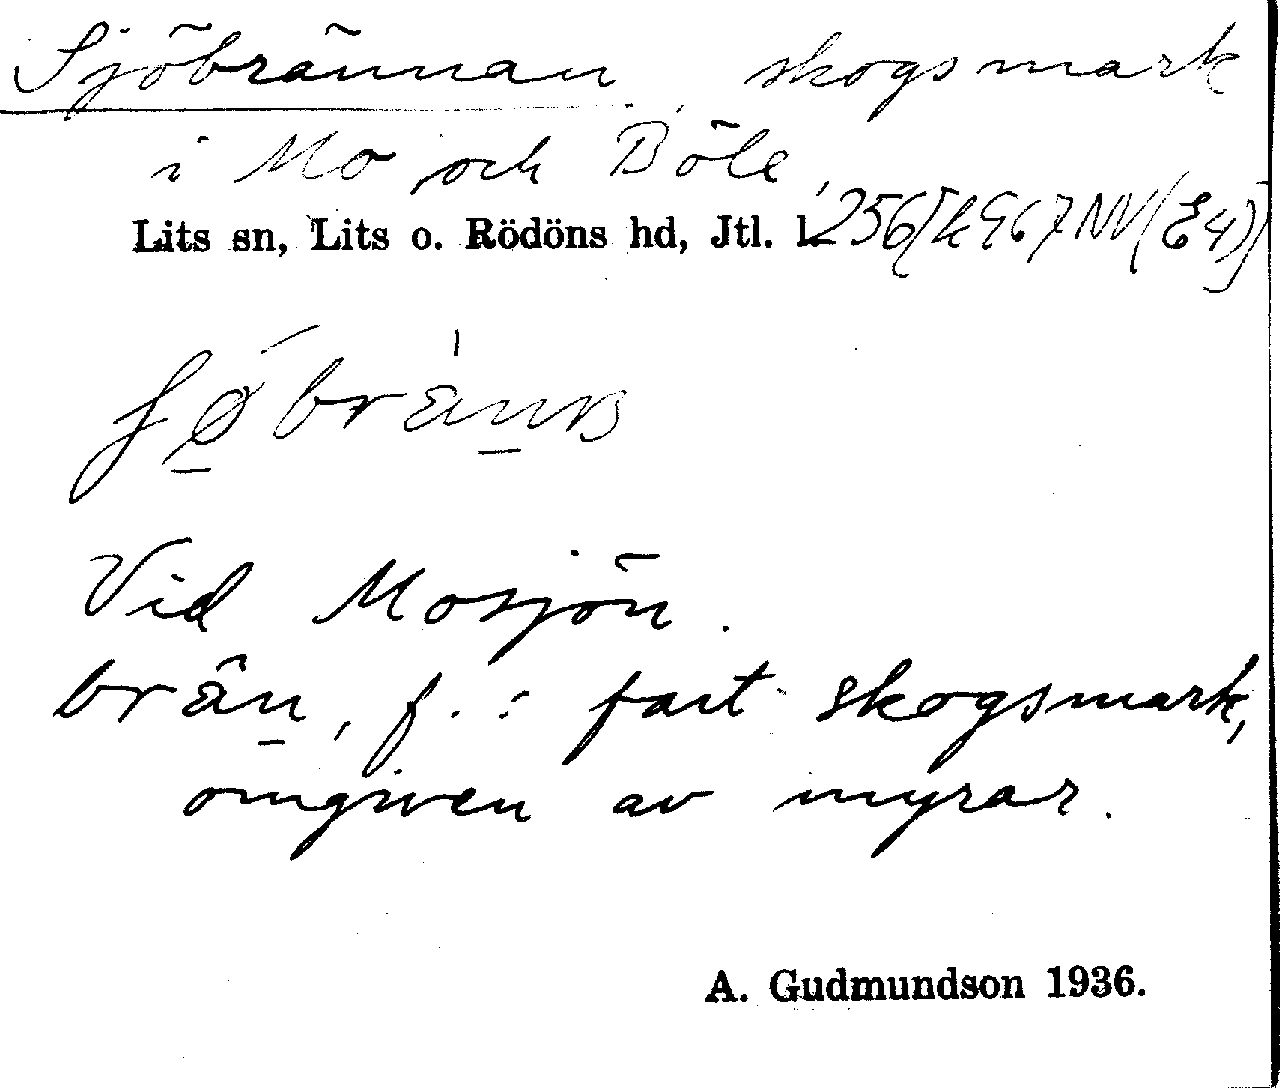 Sjöbrännan, skogsmark
i Mo och Böle,
Lits sn, Lits o. Rödöns hd, Jtl. l.
Vid Mosjön.
brän, f. : fast skogsmark,
omgiven av myrar.
A. Gudmundson 1936.